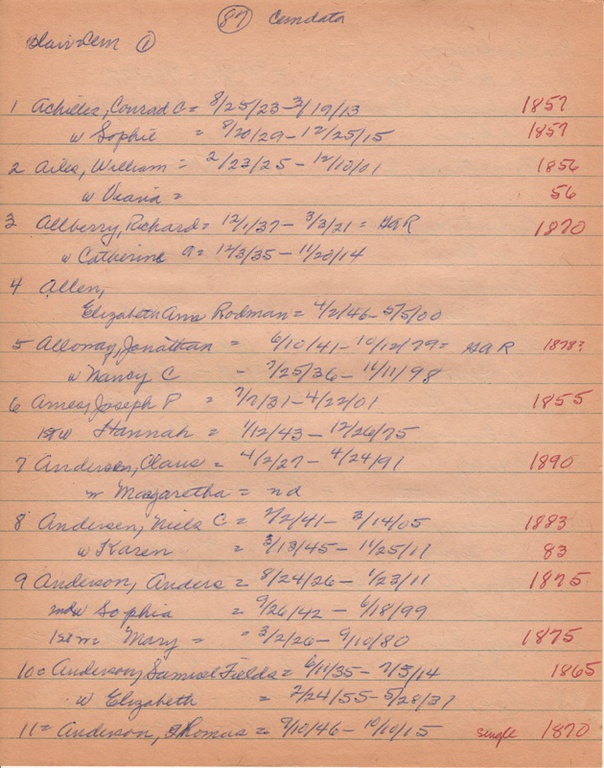 87 Cemdata
Blair Cem 1
1 Achilles, Conrad C = 8/25/23 - 3/19/13 1857
w Sophie = 8/20/29 - 12/25/15 1857
2 Ailes, William = 2/23/25 - 12/10/01 1856
w Viana = 56
3 Allberry, Richard = 12/1/37 - 3/3/21 = GAR 1870
w Catherine = 12/3/35 - 11/20/14
4 Allen,
Elizabeth Ann Rodman = 4/2/46 - 5/5/00
5 Alloway, Jonathan = 6/10/41 - 10/12/79 = GAR 1878?
w Nancy C - 7/25/36 - 11/11/98
6 Ames, Joseph P = 7/7/31 - 4/22/01 1855
1st w Hannah = 1/12/43 - 12/26/75
7 Andersen, Claus = 4/2/27 - 4/24/91 1890
w Margaretha = nd
8 Andersen, Niels C = 2/2/41 - 3/14/05 1883
w Karen = 3/13/45 - 11/25/17 83
9 Anderson, Anders = 8/24/26 - 1/23/11 1875
2nd w Sophia = 9/26/42 - 6/18/99
1st w = Mary = = 3/2/26 - 9/10/80 1875
10 = Anderson, Samuel Fields = 6/11/35 - 7/3/14 1865
w Elizabeth = 2/24/55 - 5/28/37
11 = Anderson, Thomas = 9/10/46 - 10/10/15 single 1870